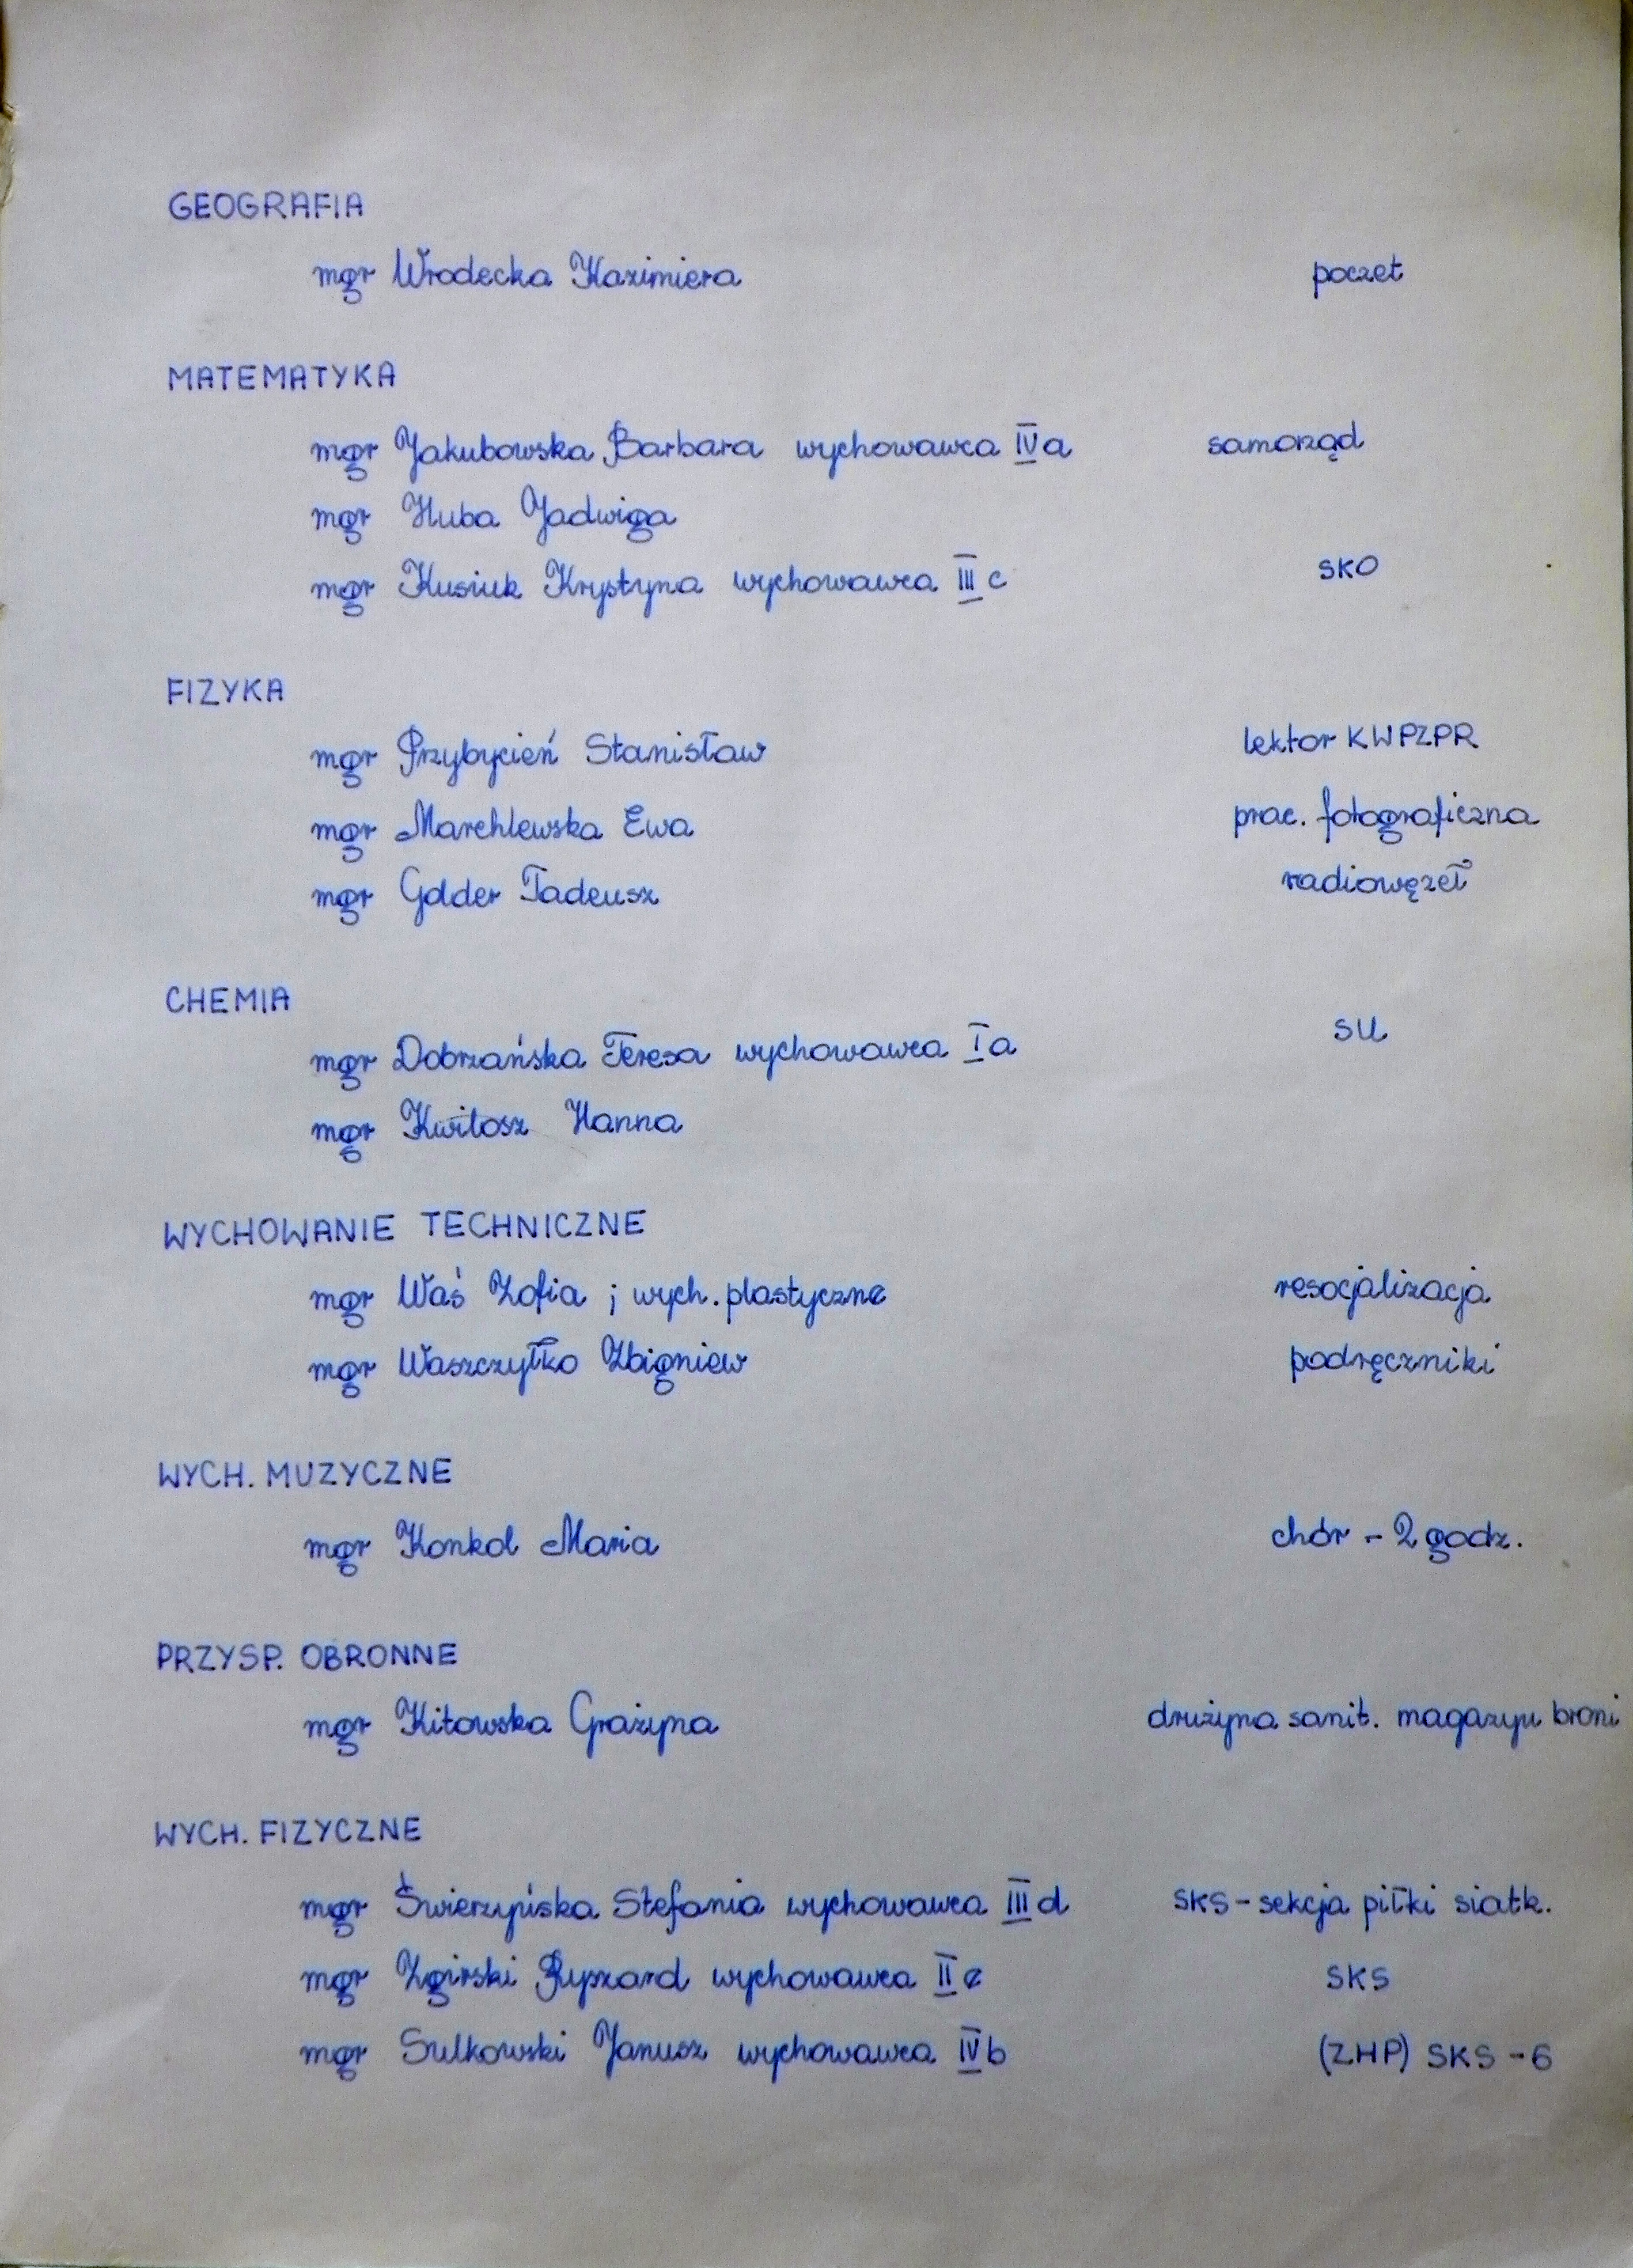 GEOGRAFIA
mgr Wrodecka Kazimiera poczet
MATEMATYKA
mgr Jakubowska Barbara wychowawca IVa samorząd
mgr Huba Jadwiga
mgr Kusiuk Krystyna wychowawca III c SKO
FIZYKA
mgr Przybycień Stanisław lektor KWPZPR
mgr Marchlewska Ewa prac. fotograficzna
mgr Golder Tadeusz radiowęzeł
CHEMIA
mgr Dobrzańska Teresa wychowawca I a SU
mgr Kwitosz Hanna
WYCHOWANIE TECHNICZNE
mgr Waś Zofia ; wych. plastyczne resocjalizacja
mgr Waszczyłko Zbigniew podręczniki
WYCH. MUZYCZNE
mgr Konkol Maria chór - 2 godz.
PRZYSP. OBRONNE
mgr Kitowska Grażyna drużyna sanit. magazyn broni
WYCH. FIZYCZNE
mgr Świerzyńska Stefania wychowawca III d SKS - sekcja piłki siatk.
mgr Zgirski Ryszard wychowawca II c SKS
mgr Sulkowski Janusz wychowawca IV b (ZHP) SKS - 6